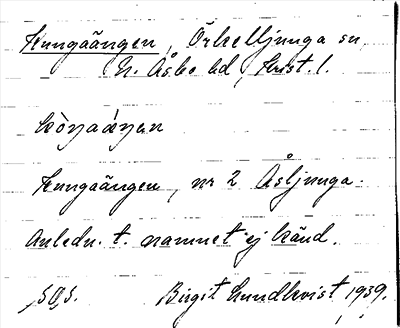 Kungaängen, Örkelljunga sn,
N. Åsbo hd, Krist. l.
kòŋaäŋən
Kungaängen, nr 2 Åsljunga.
Anledn. t. namnet ej känd.
Birgit Lundkvist 1939.